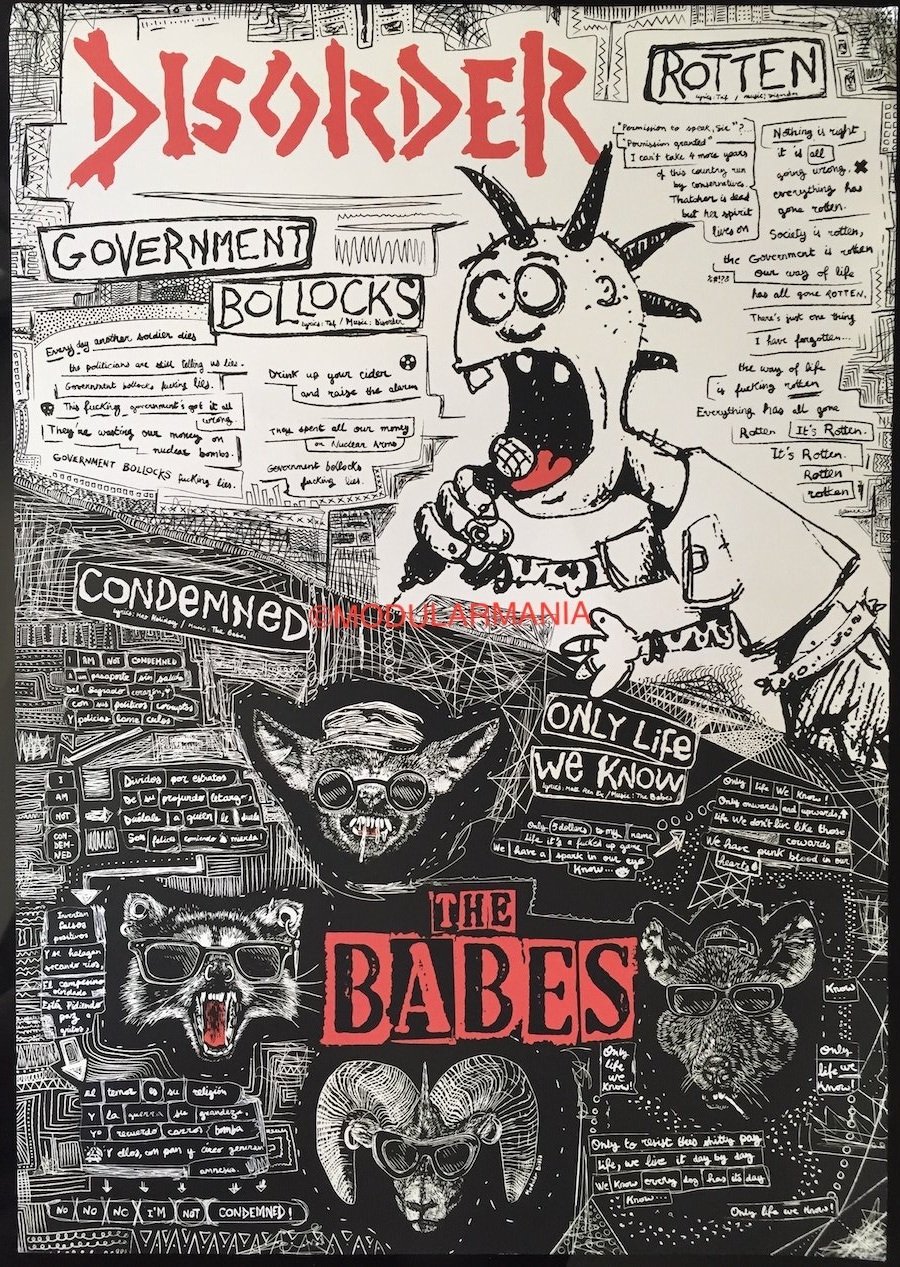 DISORDER
ROTTEN
Lyrics: Taf / Music: Disorder
"Permission to speak, Sir"?...
"Permission granted"
I can't take 4 more years
of this country run
by conservatives.
Thatcher is dead
but her spirit
lives on
Nothing is right
it is all
going wrong.
everything has
gone rotten.
Society is rotten,
the Government is rotten
our way of life
has all gone ROTTEN.
There's just one thing
I have forgotten...
the way of life
is fucking rotten
Everything has all gone
Rotten It's Rotten.
It's Rotten.
Rotten
rotten!
GOVERNMENT
BOLLOCKS
Lyrics: Taf / Music: Disorder
Every day another soldier dies
the politicians are still telling us lies.
Government bollocks fucking lies.
This fucking government's got it all
wrong.
They're wasting our money on
nuclear bombs.
GOVERNMENT BOLLOCKS fucking lies.
Drink up your cider
and raise the alarm
They spent all our money
on Nuclear Arms
Government bollocks
fucking lies.
©MODULARMANIA
CONDEMNED
Music: The Babes
I AM NOT CONDEMNED
a un pasaporte sin salida
Del Sagrado corazón,
con sus politicos corruptos
Y policias lame culos
I
AM
NOT
CON
DEM-
NED
Dividos por estratos
De su profundo letargo,
Duelale a quien le duela
Son felices comiendo mierda!
Inventan
falsos
positivos
Y se halagan
secando rios.
El campesino
olvidado
Está Pidiendo
paz a
gritos,
el temor es su religión
Y la guerra su grandeza.
Yo recuerdo carros bomba
Y ellos, con pan y circo generan
amnesia.
NO NO NO I'M NOT CONDEMNED!
ONLY LIFE
WE KNOW
Music: The Babes
Only 5 dollars to my name
life it's a fucked up game
We have a spark in our eye
Know...
Only life We Know!
Only onwards and upwards,
life We don't live like those
cowards
We have punk blood in our
hearts!
THE
BABES
Know
Only
life
we
Know!
Only
life we
Know!
Only to resist this shitty pay
life, we live it day by day
We Know every dog has its day
Know...
Only life we Know!